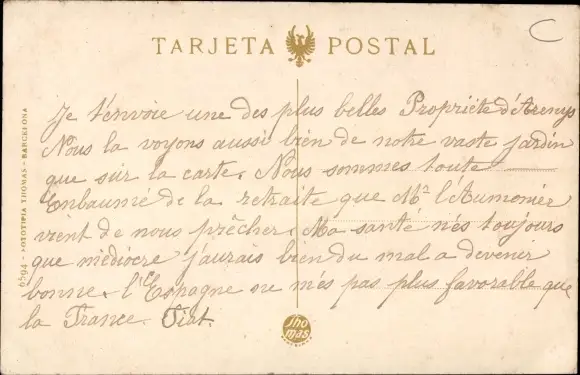 TARJETA POSTAL
C
6594 - FOTOTIPIA THOMAS - BARCELONA
Je t'envoie une des plus belles Propriété d'Arenys
Nous la voyons aussi bien de notre vaste jardin
que sur la carte. Nous sommes toute
Enbaumé de la retraite que Mr l'Aumonier
vient de nous prêcher. Ma santé n'es toujours
que médiocre j'aurais bien du mal a devenir
bonne. l'Espagne ne m'es pas plus favorable que
la France. Fiat.
Thomas